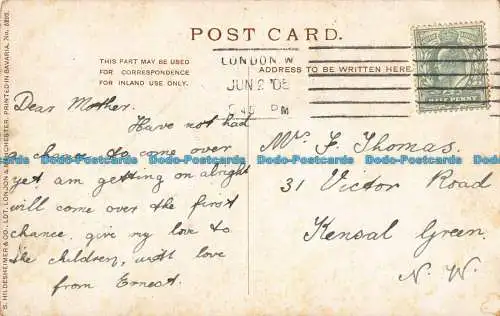 POST CARD.
THIS PART MAY BE USED
FOR CORRESPONDENCE
FOR INLAND USE ONLY.
LONDON W
JUN 2 05
PM
ADDRESS TO BE WRITTEN HERE
HALF PENNY
Dear Mother.
Have not had
a chance to come over
yet, am getting on alright
will come over the first
chance, give my love to
the children, with love
from Ernest.
Mrs F. Thomas.
31 Victor Road
Kensal Green.
N. W.
S. HILDESHEIMER & CO., LDT. LONDON & MANCHESTER. PRINTED IN BAVARIA. No.
Dodo-Postcards Dodo-Postcards Dodo-Postcards Dodo-Postcards Dodo-Postcards